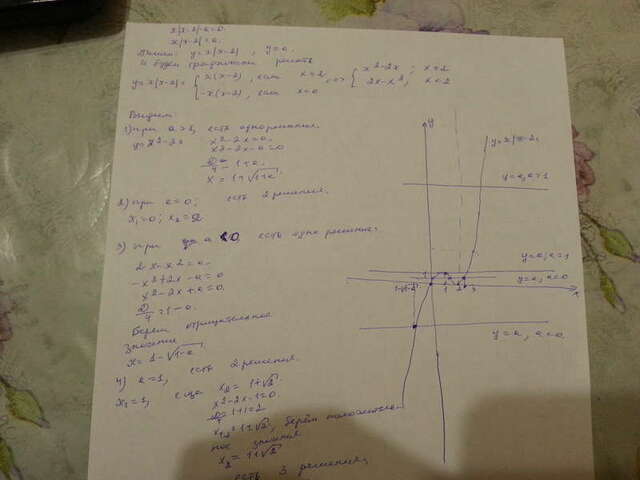 x|x-2|-a=0.
x|x-2|=a.
y=x|x-2|, y=a.
и будем графически решать
y=x|x-2|= { x(x-2), если x≥2 <=> { x²-2x; x≥2
-x(x-2), если 2x-x², x<2
1) при a>1, есть одно решение.
x²-2x=a.
x²-2x-a=0
D/4=1+a.
x=1+√1+a.
2) при a=0; есть 2 решения.
x₁=0; x₂=2
3) при a<0, есть одно решение.
2x-x²=a.
-x²+2x-a=0
x²-2x+a=0.
D/4=1-a.
Берём отрицательное
значение
x=1-√1-a.
4) a=1, есть 2 решения.
x₁=1, x₂=1+√2.
x²-2x-1=0
D/4=1+1=2
x₁,₂=1±√2, берём положитель
ное значение
x₂=1+√2.
есть 3 решения,
y
y=x|x-2|
y=a, a>1
y=a, a=1
y=a, a=0
1 1 2 3
y=a, a<0.